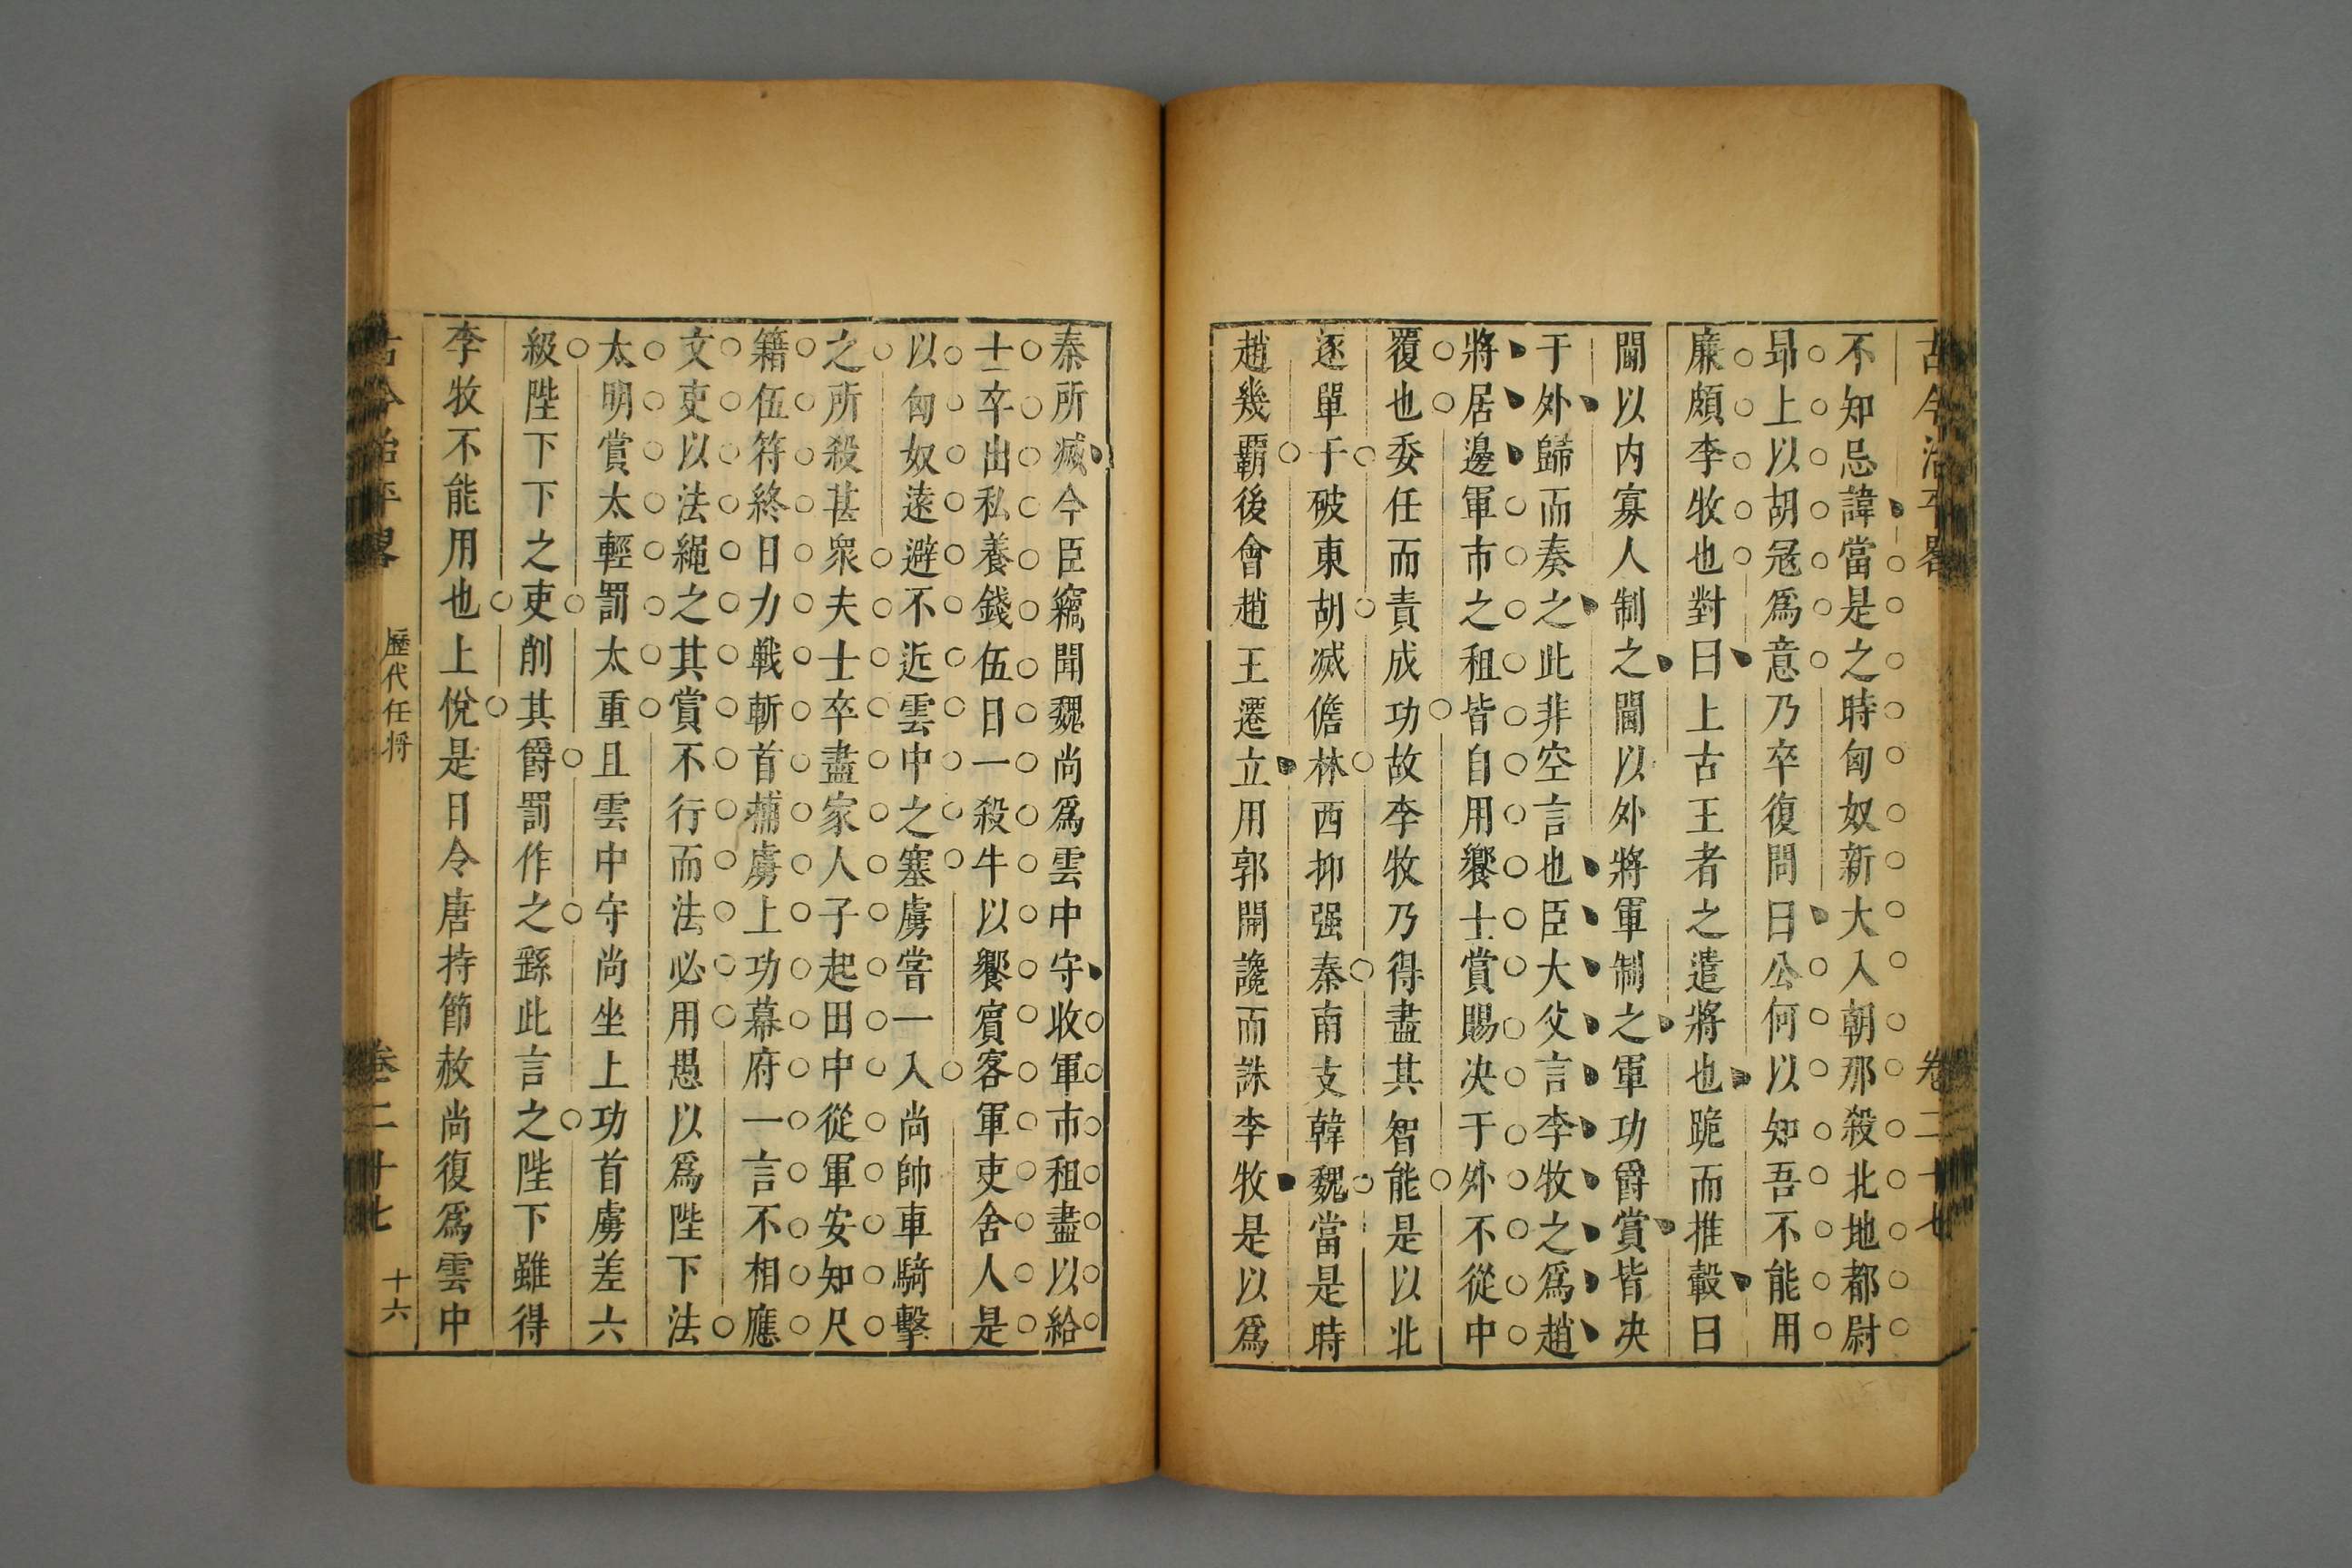 古今治平畧 卷二十七
不知忌諱當是之時匈奴新大入朝那殺北地都尉
昻上以胡冦爲意乃卒復問曰公何以知吾不能用
廉頗李牧也對曰上古王者之遣將也跪而推轂曰
閫以内寡人制之閫以外將軍制之軍功爵賞皆决
于外歸而奏之此非空言也臣大父言李牧之爲趙
將居邊軍市之租皆自用饗士賞賜决于外不從中
覆也委任而責成功故李牧乃得盡其智能是以北
逐單于破東胡滅儋林西抑强秦南支韓魏當是時
趙幾覇後會趙王遷立用郭開讒而誅李牧是以爲
秦所滅今臣竊聞魏尚爲雲中守收軍市租盡以給
士卒出私養錢伍日一殺牛以饗賔客軍吏舍人是
以匈奴遠避不近雲中之塞虜甞一入尚帥車騎擊
之所殺甚衆夫士卒盡家人子起田中從軍安知尺
籍伍符終日力戰斬首捕虜上功幕府一言不相應
文吏以法繩之其賞不行而法必用愚以爲陛下法
太明賞太輕罰太重且雲中守尚坐上功首虜差六
級陛下下之吏削其爵罰作之繇此言之陛下雖得
李牧不能用也上悅是日令唐持節赦尚復爲雲中
古今治平畧 歷代任將 卷二十七 十六